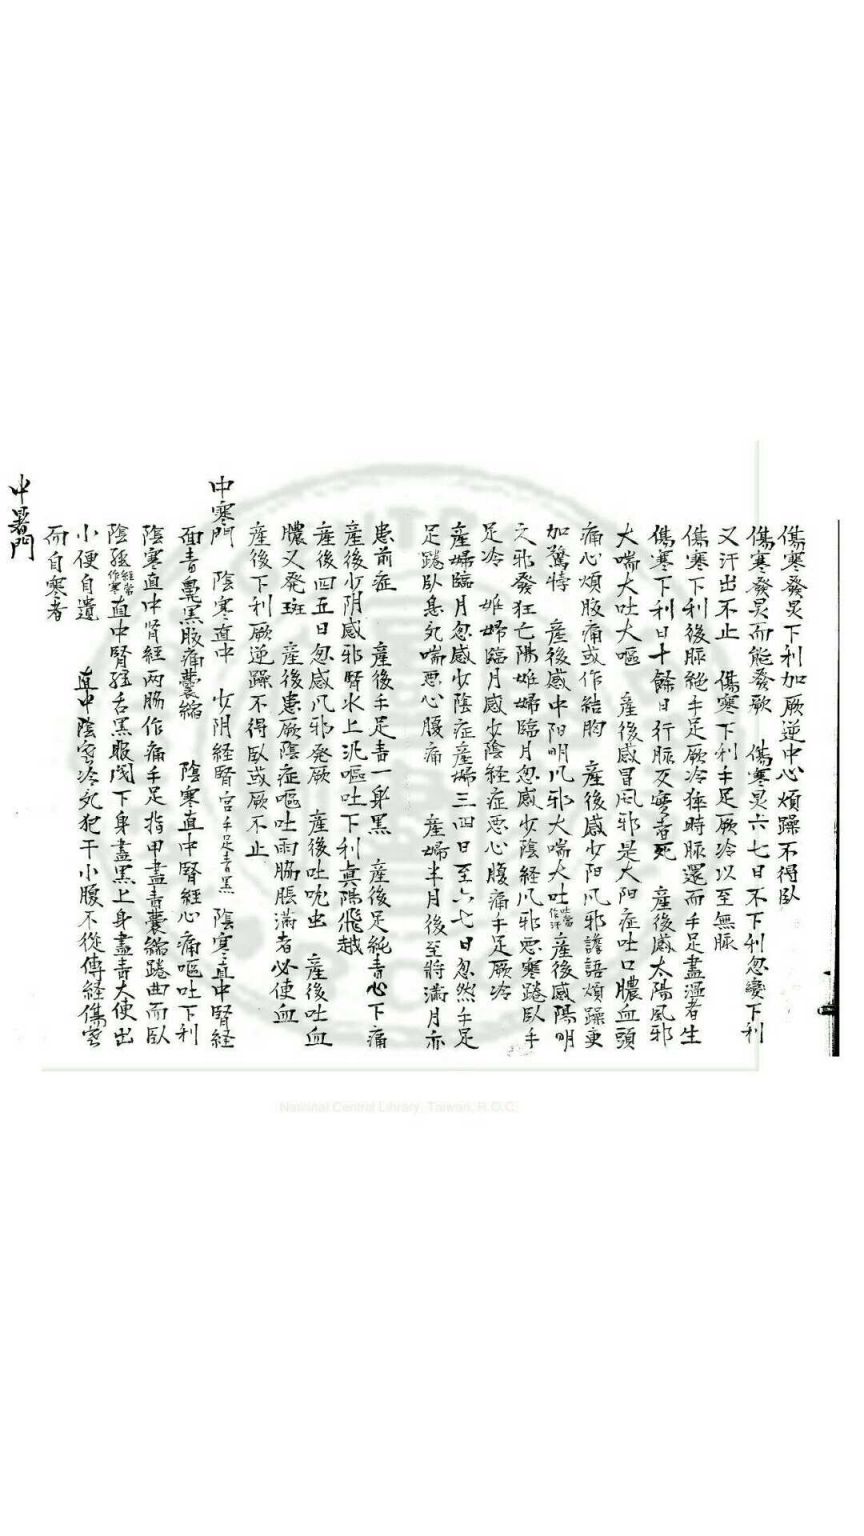 傷寒發炅下利加厥逆中心煩躁不得臥
傷寒發炅而能發歌　傷寒炅六七日不下利忽變下利
又汗出不止　傷寒下利手足厥冷以至無脈
傷寒下利後脈絕手足厥冷猝時脈還而手足盡溫者生
傷寒下利日十餘日行脈反實者死　産後感太陽風邪
大喘大吐大嘔　産後感冒風邪是大阳症吐口膿血頭
痛心煩腹痛或作結胸　産後感少阳凡邪譫語煩躁更
加驚悸　産後感中阳明凡邪大喘大吐　産後感陽明
之邪發狂亡陽　婦臨月忽感少陰經凡邪悪寒踡臥手
足冷　婦臨月感少陰経症悪心腹痛手足厥冷
産婦臨月忽感少陰症産婦三四日至六七日忽然手足
足踡臥息死喘悪心腹痛　産婦半月後至將滿月亦
患前症　産後手足青一身黑　産後足純青心下痛
産後少阴感邪腎水上泛嘔吐下利真陽飛越
産後四五日忽感凡邪発厥　産後吐蚘虫　産後吐血
膿又発斑　産後患厥陰症嘔吐兩脇脹滿者必便血
産後下利厥逆躁不得臥或厥不止
中寒門　陰寒直中　少阴経腎宮手足青黑　陰寒直中腎経
面青鼻黑腹痛囊縮　陰寒直中腎經心痛嘔吐下利
陰寒直中肾経两肠作痛手足指甲盡青囊縮踡曲而臥
陰經直中腎經舌黑眼閉下身盡黑上身盡青大便出
小便自遺　直中陰寒冷死犯干小腹不從傳経傷寒
而自寒者
中暑門
National Central Library, Taiwan, R.O.C.